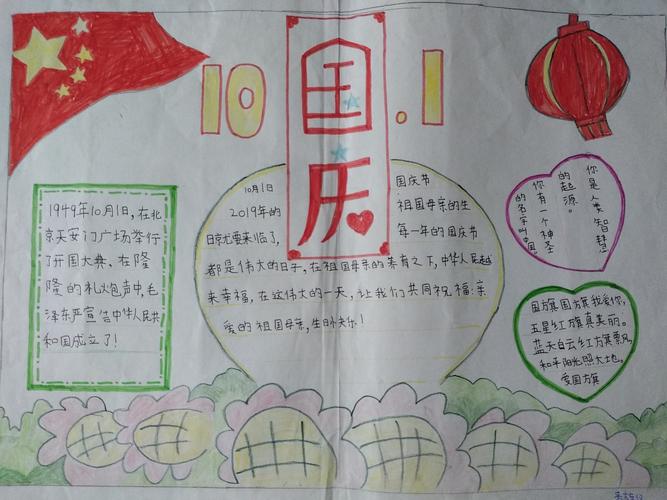 10.1
国庆
1949年10月1日,在北
京天安门广场举行
了开国大典、在隆
隆的礼火炮声中,毛
泽东严宣告中华人民共
和国成立了!
10月1日 国庆节
2019年的 祖国母亲的生
日就要来临了, 每一年的国庆节
都是伟大的日子,在祖国母亲的养育之下,中华人民越
来幸福,在这伟大的一天,让我们共同祝福:亲
爱的祖国母亲,生日快乐!
你是人类智慧
的起源。
你有一个神圣
的名字叫中国。
国旗国旗我爱你,
五星红旗真美丽。
蓝天白云红旗飘,
和平阳光照大地,
爱国旗